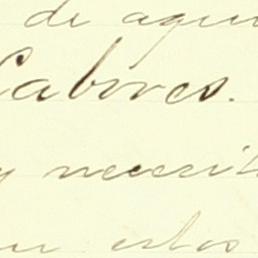 de aqui
Cabores.
y necesit
en estos